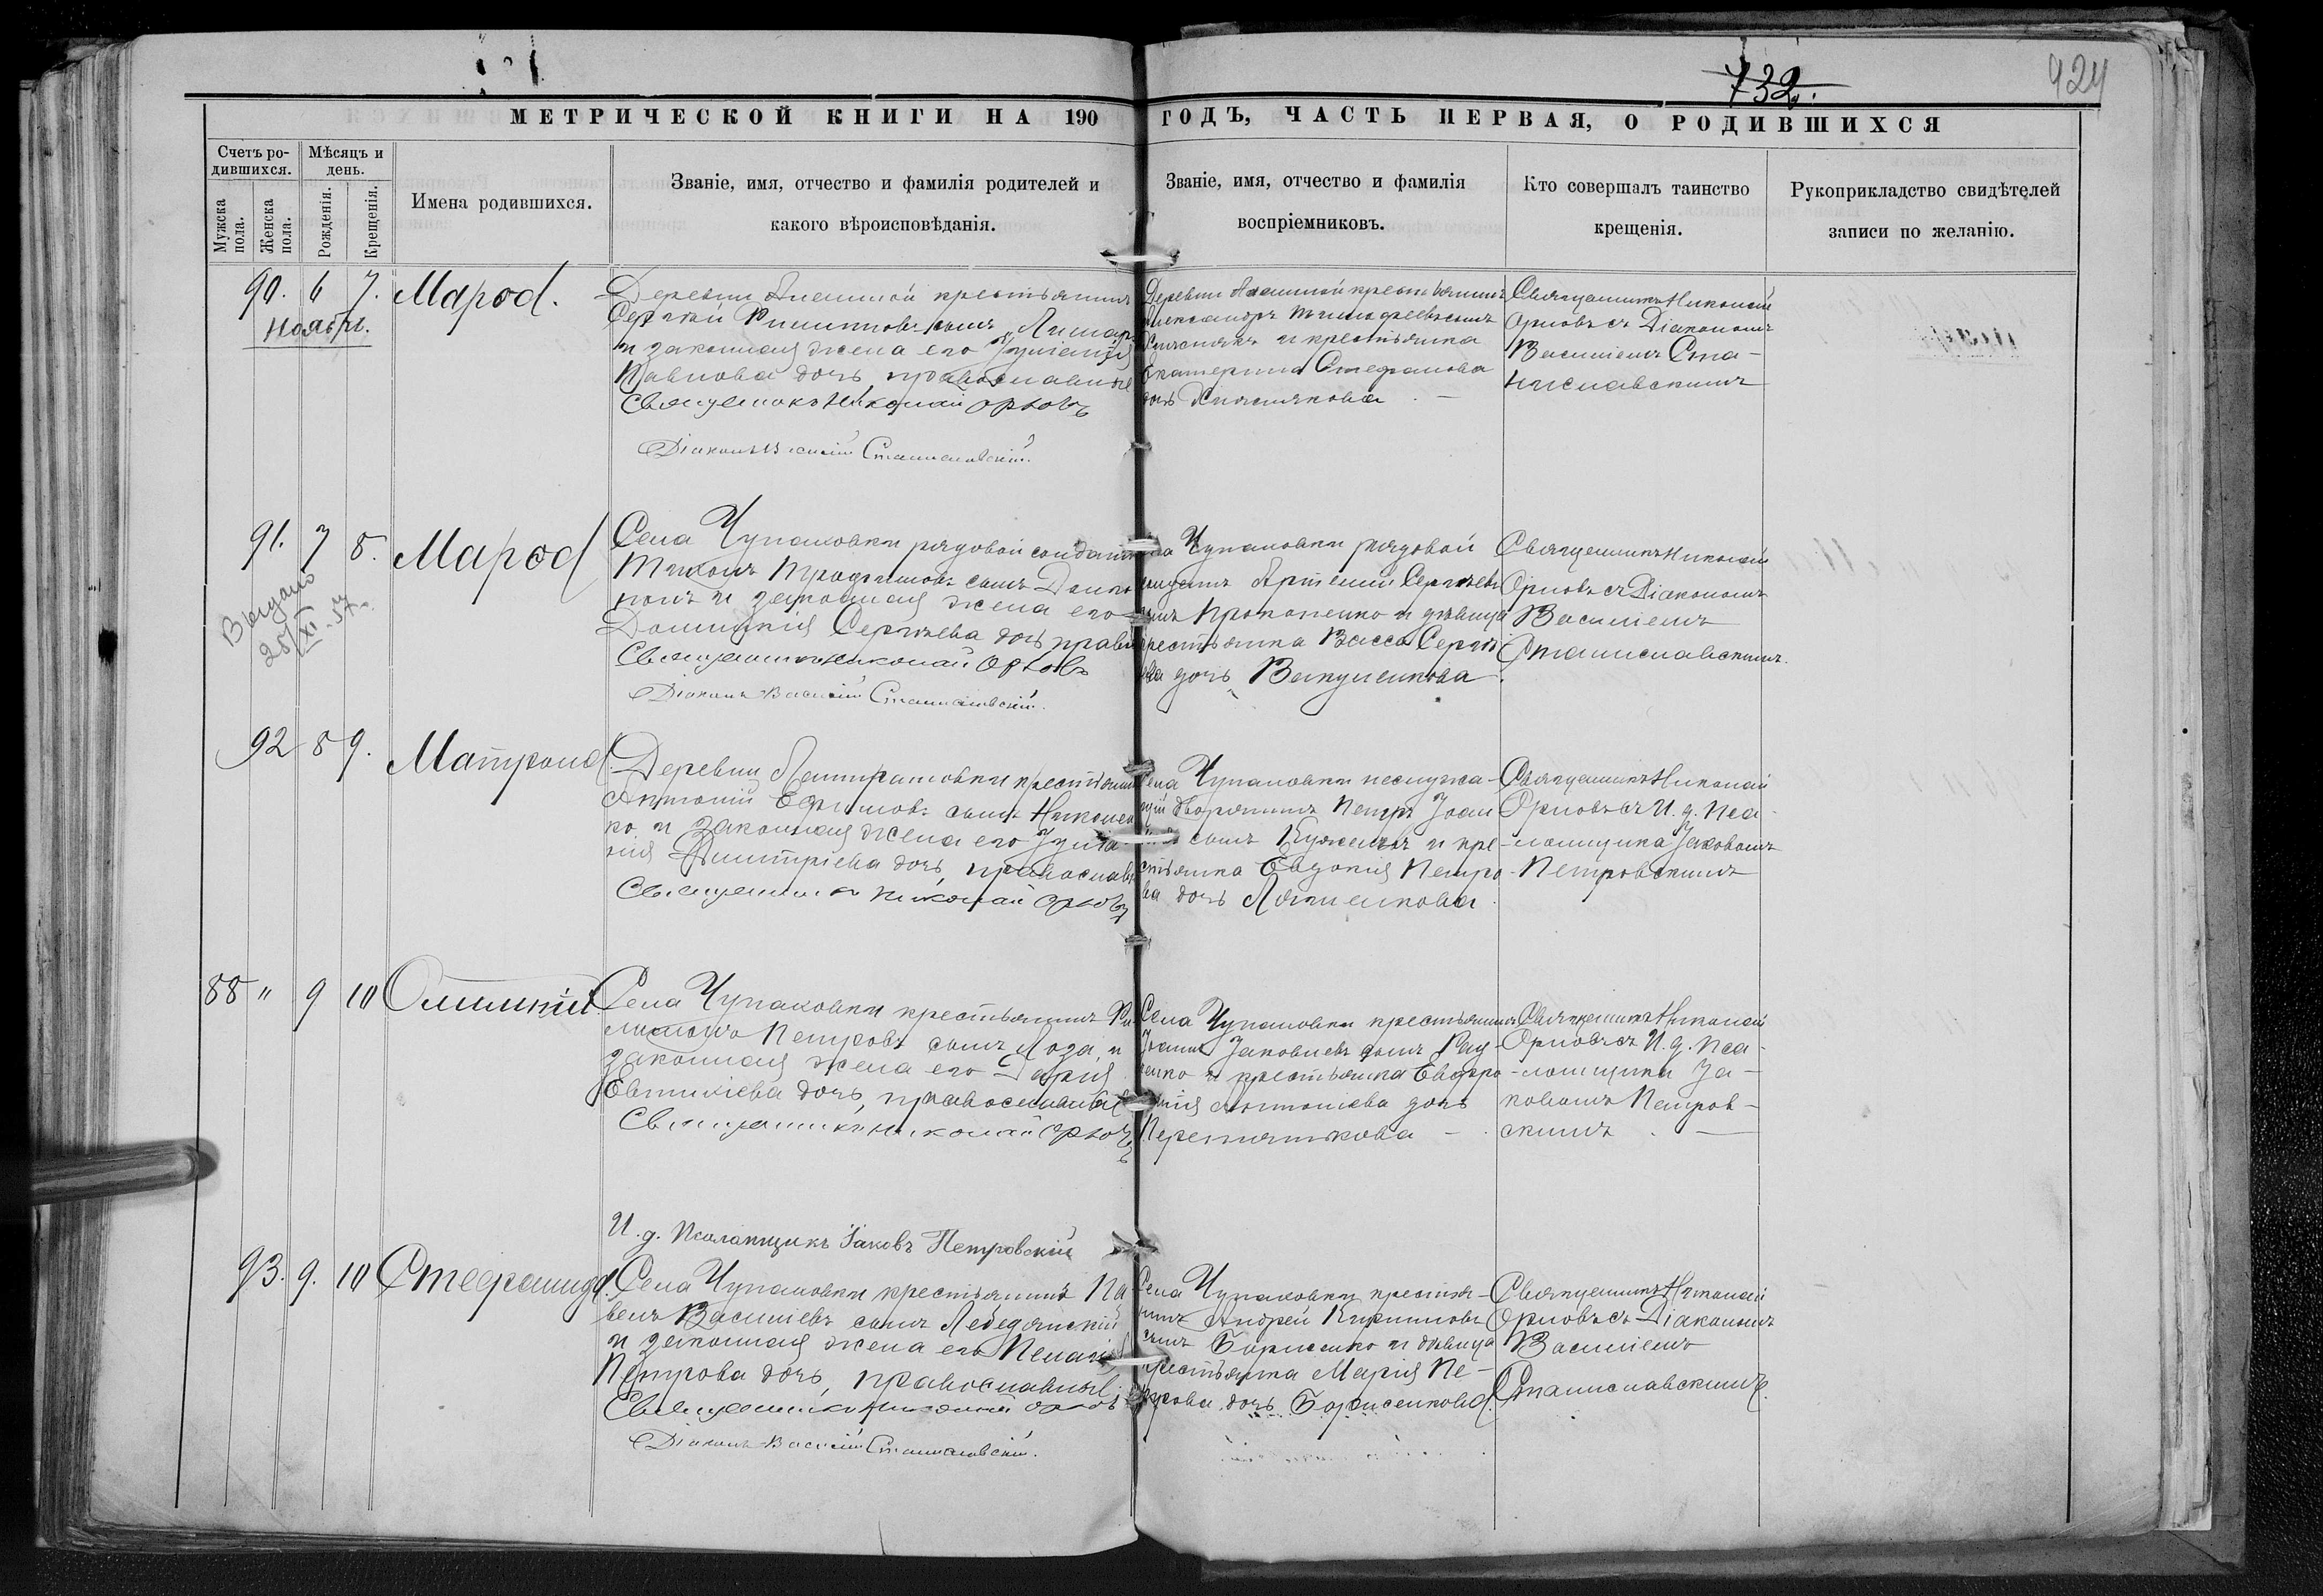 732.
424
МЕТРИЧЕСКОЙ КНИГИ НА 190 ГОДЪ, ЧАСТЬ ПЕРВАЯ, О РОДИВШИХСЯ
Счетъ ро-
дившихся.
Мѣсяцъ и
день.
Мужска
пола.
Женска
пола.
Рожденія.
Крещенія.
Имена родившихся.
Званіе, имя, отчество и фамилія родителей и
какого вѣроисповѣданія.
Званіе, имя, отчество и фамилія
воспріемниковъ.
Кто совершалъ таинство
крещенія.
Рукоприкладство свидѣтелей
записи по желанію.
90. 6 7.
Ноября.
Деревни крестьянинъ
Сергій сынъ
и законная жена его Іуліанія
Павлова дочь, православные
Священникъ Николай Орловъ
Діаконъ Василій Станиславскій.
Деревни крестьянинъ
Александръ сынъ
и крестьянка
Екатерина Стефанова
дочь
Священникъ Николай
Орловъ съ Діакономъ
Василіемъ Ста-
ниславскимъ
91. 7 8.
Выдано
25/XI-57
Села Чупаховки рядовой солдатъ
Тихонъ Трофимовъ сынъ
и законная жена его
Домникія Сергѣева дочь
Священникъ Николай Орловъ
Діаконъ Василій Станиславскій.
Чупаховки рядовой
Артемій Сергѣевъ
Прокопенко и дѣвица
крестьянка Васса Сергѣ-
ева дочь Вакуленкова.
Священникъ Николай
Орловъ съ Діакономъ
Василіемъ
Станиславскимъ.
92 8 9.
Матрона
Деревни крестьянинъ
Антоній Ефимовъ сынъ Николен
ко, и законная жена его Іуліа-
нія Димитріева дочь,
Священникъ Николай Орловъ
Села Чупаховки неслужа-
щій дворянинъ Петръ Іоан
сынъ и кре-
стьянка Евдокія Петро-
ва дочь
Священникъ Николай
Орловъ съ И. д. Пса-
ломщика Іаковомъ
Петровскимъ
88 " 9 10
Села Чупаховки крестьянинъ Фи
Петровъ сынъ Лоза, и
законная жена его Дарія
Евтихіева дочь, православные
Священникъ Николай Орловъ
И. д. Псаломщикъ Іаковъ Петровскій
Села Чупаховки крестьянинъ
Іоаннъ Іаковлевъ сынъ
и крестьянка Евфро-
Антоніева дочь
Перепяткова
Священникъ Николай
Орловъ съ И. д. Пса-
ломщика Іа-
ковомъ Петров-
скимъ
93. 9. 10
Стефанида.
Села Чупаховки крестьянинъ Па
велъ Василіевъ сынъ Лебедянскій
и законная жена его Пелагія
Петрова дочь, православные
Священникъ Николай Орловъ
Діаконъ Василій Станиславскій.
Села Чупаховки крестья-
нинъ Андрей Кирилловъ
сынъ Борисенко и дѣвица
крестьянка Марія Пе-
трова дочь Борисенкова.
Священникъ Николай
Орловъ съ Діакономъ
Василіемъ
Станиславскимъ.